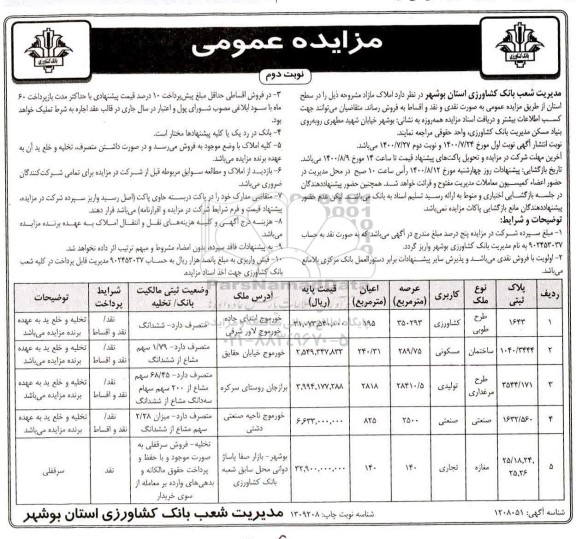 مزایده عمومی
نوبت دوم
مدیریت شعب بانک کشاورزی استان بوشهر در نظر دارد املاک مازاد مشروحه ذیل را در سطح
استان از طریق مزایده عمومی به صورت نقدی و نقد و اقساط به فروش رساند. متقاضیان می‌توانند جهت
کسب اطلاعات بیشتر و دریافت اسناد مزایده همه‌روزه به نشانی: بوشهر خیابان شهید مطهری روبه‌روی
بنیاد مسکن مدیریت بانک کشاورزی، واحد حقوقی مراجعه نمایند.
نوبت انتشار آگهی نوبت اول مورخ ۱۴۰۰/۷/۲۴ و نوبت دوم ۱۴۰۰/۷/۲۷ می‌باشد.
آخرین مهلت شرکت در مزایده و تحویل پاکت‌های پیشنهاد قیمت تا ساعت ۱۴ مورخ ۱۴۰۰/۸/۹ می‌باشد.
تاریخ بازگشایی: پیشنهادات روز چهارشنبه مورخ ۱۴۰۰/۸/۱۲ رأس ساعت ۱۰ صبح در محل مدیریت در
حضور اعضاء کمیسیون معاملات مدیریت مفتوح و قرائت خواهد شد. همچنین حضور پیشنهاددهندگان
در جلسه بازگشایی اختیاری و منوط به ارائه رسید تسلیم اسناد به بانک می‌باشد. لیکن عدم حضور
پیشنهاددهندگان مانع بازگشایی پاکات مزایده نمی‌باشد.
توضیحات و شرایط:
۱- مبلغ سپرده شرکت در مزایده پنج درصد مبلغ مندرج در آگهی می‌باشد که به صورت نقد به حساب
۹۰۲۴۵۳۰۳۷ به نام مدیریت بانک کشاورزی بوشهر واریز گردد.
۲- اولویت با فروش نقدی می‌باشد و پذیرش سایر پیشنهادات برابر دستورالعمل بانک مرکزی بلامانع
می‌باشد.
۳- در فروش اقساطی حداقل مبلغ پیش‌پرداخت ۱۰ درصد قیمت پیشنهادی با حداکثر مدت بازپرداخت ۶۰
ماه با سود ابلاغی مصوب شورای پول و اعتبار در سال جاری در قالب عقد اجاره به شرط تملیک خواهد
بود.
۴- بانک در رد یک یا کلیه پیشنهادها مختار است.
۵- کلیه املاک با وضع موجود به فروش می‌رسد و در صورت داشتن متصرف، تخلیه و خلع ید آن به
عهده برنده مزایده می‌باشد.
۶- بازدید از املاک و مطالعه سوابق مربوطه قبل از شرکت در مزایده برای تمامی شرکت‌کنندگان
ضروری می‌باشد.
۷- متقاضی مدارک خود را در پاکت دربسته حاوی پاکت (اصل رسید واریز سپرده شرکت در مزایده،
پیشنهاد قیمت و فرم شرایط شرکت در مزایده و اقرارنامه) می‌باشد قرار دهند.
۸- هزینه درج آگهی و کلیه هزینه‌های نقل و انتقال املاک به عهده برنده مزایده
می‌باشد.
۹- به پیشنهادات فاقد سپرده، بدون امضاء مشروط و مبهم ترتیب اثر داده نخواهد شد.
۱۰- فیش واریزی به مبلغ پانصد هزار ریال به حساب ۹۰۲۴۵۳۰۳۷ مدیریت قابل پرداخت در کلیه شعب
بانک کشاورزی جهت اخذ اسناد مزایده.
ردیف | پلاک ثبتی | نوع ملک | کاربری | عرصه (مترمربع) | اعیان (مترمربع) | قیمت پایه (ریال) | آدرس ملک | وضعیت ثبتی مالکیت بانک/ تخلیه | شرایط پرداخت | توضیحات
۱ | ۱۶۴۳ | طرح طوبی | کشاورزی | ۳۵۰۲۹۳ | ۱۹۵ | خورموج ابتدای جاده خورموج لاور شرقی | متصرف دارد- ششدانگ | نقد/ نقد و اقساط | تخلیه و خلع ید به عهده برنده مزایده می‌باشد
۲ | ۱۰۴۰/۳۴۴۴ | ساختمان | مسکونی | ۲۸۹/۷۵ | ۲۴۰/۳۱ | ۲,۵۴۹,۳۴۷,۸۳۲ | خورموج خیابان حقایق | متصرف دارد- ۱/۷۹ سهم مشاع از ششدانگ | نقد/ نقد و اقساط | تخلیه و خلع ید به عهده برنده مزایده می‌باشد
۳ | ۳۵۴۴/۱۷۱ | طرح مرغداری | تولیدی | ۲۸۴۱۰/۵ | ۲۸۱۸ | ۳,۹۹۴,۱۷۷,۲۸۸ | برازجان روستای سرکره | متصرف دارد- ۶۸/۴۵ سهم مشاع از ۲۰۰ سهم سهام سه‌دانگ مشاع از ششدانگ | نقد/ نقد و اقساط | تخلیه و خلع ید به عهده برنده مزایده می‌باشد
۴ | ۱۶۳۲/۵۶۰ | صنعتی | صنعتی | ۲۵۰۰ | ۸۲۵ | ۶,۶۳۳,۰۰۰,۰۰۰ | خورموج ناحیه صنعتی دشتی | متصرف دارد- میزان ۲/۲۸ سهم مشاع از ششدانگ | نقد/ نقد و اقساط | تخلیه و خلع ید به عهده برنده مزایده می‌باشد
۵ | ۲۵/۱۸,۲۴, ۲۵,۲۶ | مغازه | تجاری | ۱۴۰ | ۱۴۰ | ۳۲,۹۰۰,۰۰۰,۰۰۰ | بوشهر- بازار صفا پاساژ دوانی محل سابق شعبه بانک کشاورزی | تخلیه- فروش سرقفلی به صورت موجود و با حفظ و پرداخت حقوق مالکانه و بدهی‌های وارده بر معامله از سوی خریدار | نقد | سرقفلی
شناسه آگهی: ۱۲۰۸۰۵۱
شناسه نوبت چاپ: ۱۳۰۹۲۰۸
مدیریت شعب بانک کشاورزی استان بوشهر